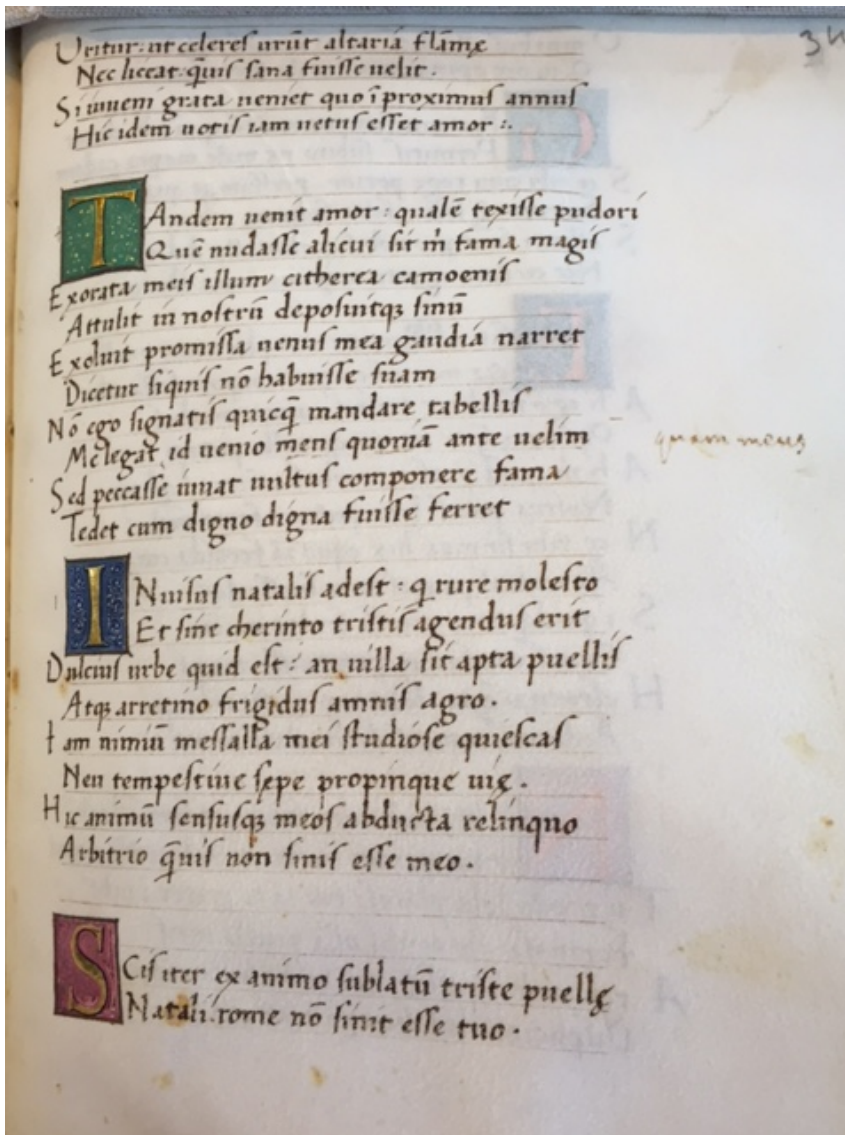 34
Uritur: ut celeres urūt altaria flāmę
Nec liceat q̄uis sana fuisse uelit.
Si iuueni grata ueniet quo ī proximus annus
Hic idem uotis iam uetus esset amor:.
TAndem uenit amor: qualē texisse pudori
Quē nudasse alicui sit m̄ fama magis
Exorata meis illum citherea camoenis
Attulit in nostrū deposuitqꝫ sinū
Exoluit promissa uenus mea gaudia narret
Dicetur siquis nō habuisse suam
Nō ego signatis quicq̄ mandare tabellis
Me legat id uenio mens quoniā ante uelim
quam meus
Sed peccasse iuuat uultus componere fama
Tedet cum digno digna fuisse ferret
INuisus natalis adest: q rure molesto
Et sine cherinto tristis agendus erit
Dulcius urbe quid est: an uilla sit apta puellis
Atqꝫ arretino frigidus amnis agro.
Iam nimiū messalla mei studiose quiescas
Neu tempestiue sępe propinque uię.
Hic animū sensusqꝫ meos abducta relinquo
Arbitrio q̄uis non sinis esse meo.
SCis iter ex animo sublatū triste puellę
Natali rome nō sinit esse tuo.